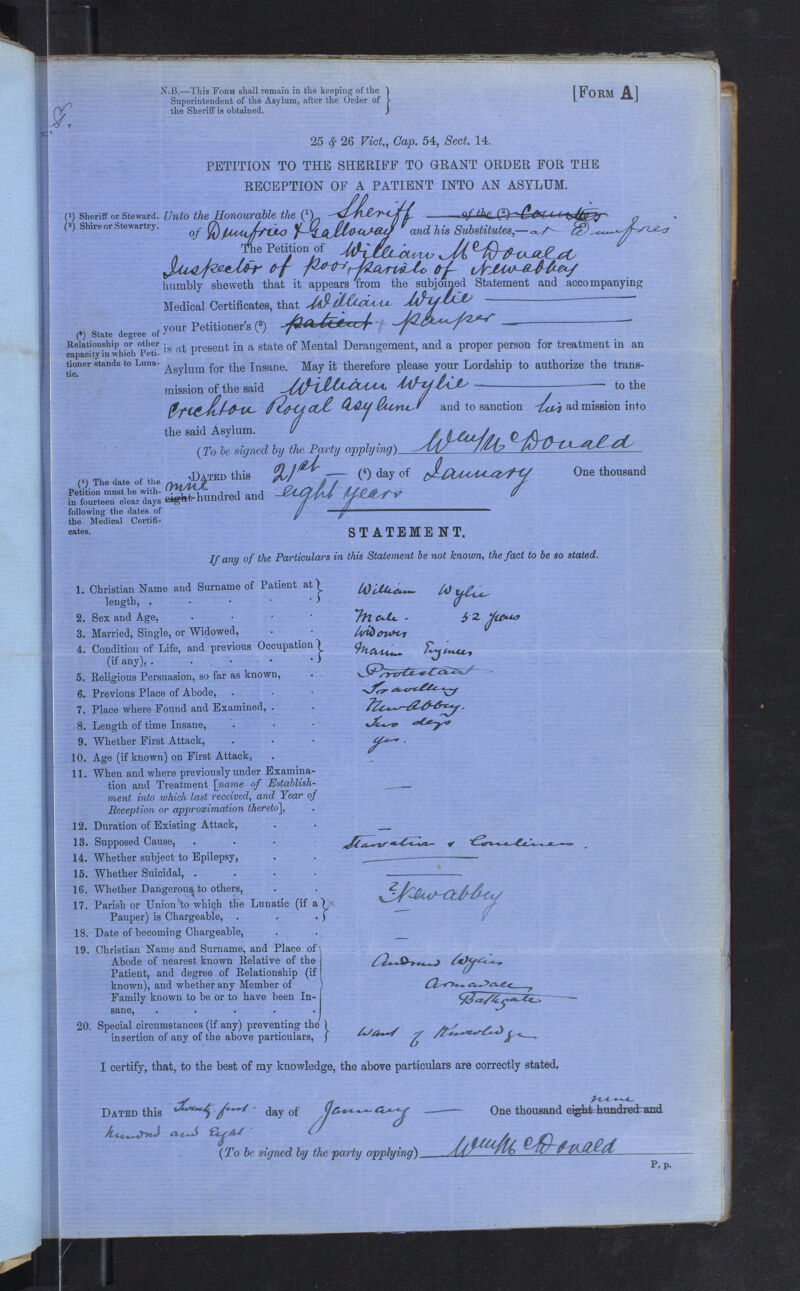 N.B.—This Form shall remain in the keeping of the
Superintendent of the Asylum, after the Order of
the Sheriff is obtained.
[Form A]
25 & 26 Vict., Cap. 54, Sect. 14.
PETITION TO THE SHERIFF TO GRANT ORDER FOR THE
RECEPTION OF A PATIENT INTO AN ASYLUM.
(1) Sheriff or Steward.
(2) Shire or Stewartry.
Unto the Honourable the (1) Sheriff of the (2) Counties
of Dumfries & Galloway and his Substitutes,— at Dumfries
The Petition of William McDonald
Inspector of poor, parish of Newabbey
humbly sheweth that it appears from the subjoined Statement and accompanying
Medical Certificates, that William Wylie
(3) State degree of
Relationship or other
capacity in which Peti-
tioner stands to Luna-
tic.
your Petitioner's (3) patient pauper
is at present in a state of Mental Derangement, and a proper person for treatment in an
Asylum for the Insane. May it therefore please your Lordship to authorize the trans-
mission of the said William Wylie to the
Crichton Royal Asylum and to sanction his admission into
the said Asylum.
(To be signed by the Party applying) Wm McDonald
(4) The date of the
Petition must be with-
in fourteen clear days
following the dates of
the Medical Certifi-
cates.
Dated this 21st (4) day of January One thousand
nine
eight hundred and eight years
STATEMENT.
If any of the Particulars in this Statement be not known, the fact to be so stated.
1. Christian Name and Surname of Patient at
length, . William Wylie
2. Sex and Age, Male. 52 years
3. Married, Single, or Widowed, Widower
4. Condition of Life, and previous Occupation
(if any), . Marine Engineer
5. Religious Persuasion, so far as known, Protestant
6. Previous Place of Abode, Travelling
7. Place where Found and Examined, Newabbey.
8. Length of time Insane, Two days
9. Whether First Attack, yes.
10. Age (if known) on First Attack,
11. When and where previously under Examina-
tion and Treatment [name of Establish-
ment into which last received, and Year of
Reception or approximation thereto], —
12. Duration of Existing Attack, —
13. Supposed Cause, Starvation & Loneliness.
14. Whether subject to Epilepsy, —
15. Whether Suicidal, —
16. Whether Dangerous to others,
17. Parish or Union to which the Lunatic (if a
Pauper) is Chargeable, Newabbey
18. Date of becoming Chargeable, —
19. Christian Name and Surname, and Place of
Abode of nearest known Relative of the
Patient, and degree of Relationship (if
known), and whether any Member of
Family known to be or to have been In-
sane, Andrew Wylie
Armadale
Bathgate
20. Special circumstances (if any) preventing the
insertion of any of the above particulars, Want of Knowledge
I certify, that, to the best of my knowledge, the above particulars are correctly stated.
Dated this Twenty first day of January — One thousand eight hundred and
nine
hundred and Eight
(To be signed by the party applying) Wm McDonald
P. p.